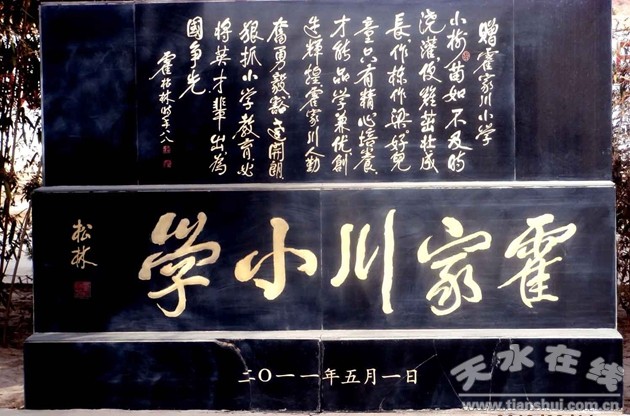 赠霍家川小学
小树苗如不及时
浇灌便难茁壮成
长作栋作梁好儿
童只有精心培养
才能品学兼优创
造辉煌霍家川人勤
奋勇毅豁达开朗
狠抓小学教育必
将英才辈出为
國争先
霍松林
霍家川小學
松林
二〇一一年五月一日
天水在线
www.tianshui.com.cn